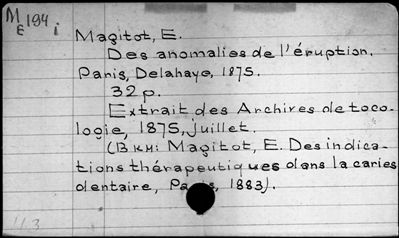 M 194 i
E
Magitot, E.
Des anomalies de l'éruption.
Paris, Delahaye, 1875.
32 p.
Extrait des Archires de toco-
logie, 1875, juillet.
(Bкн: Magitot, E. Des indica-
tions thérapeutiques dans la caries
dentaire, Pa s, 1883).
43